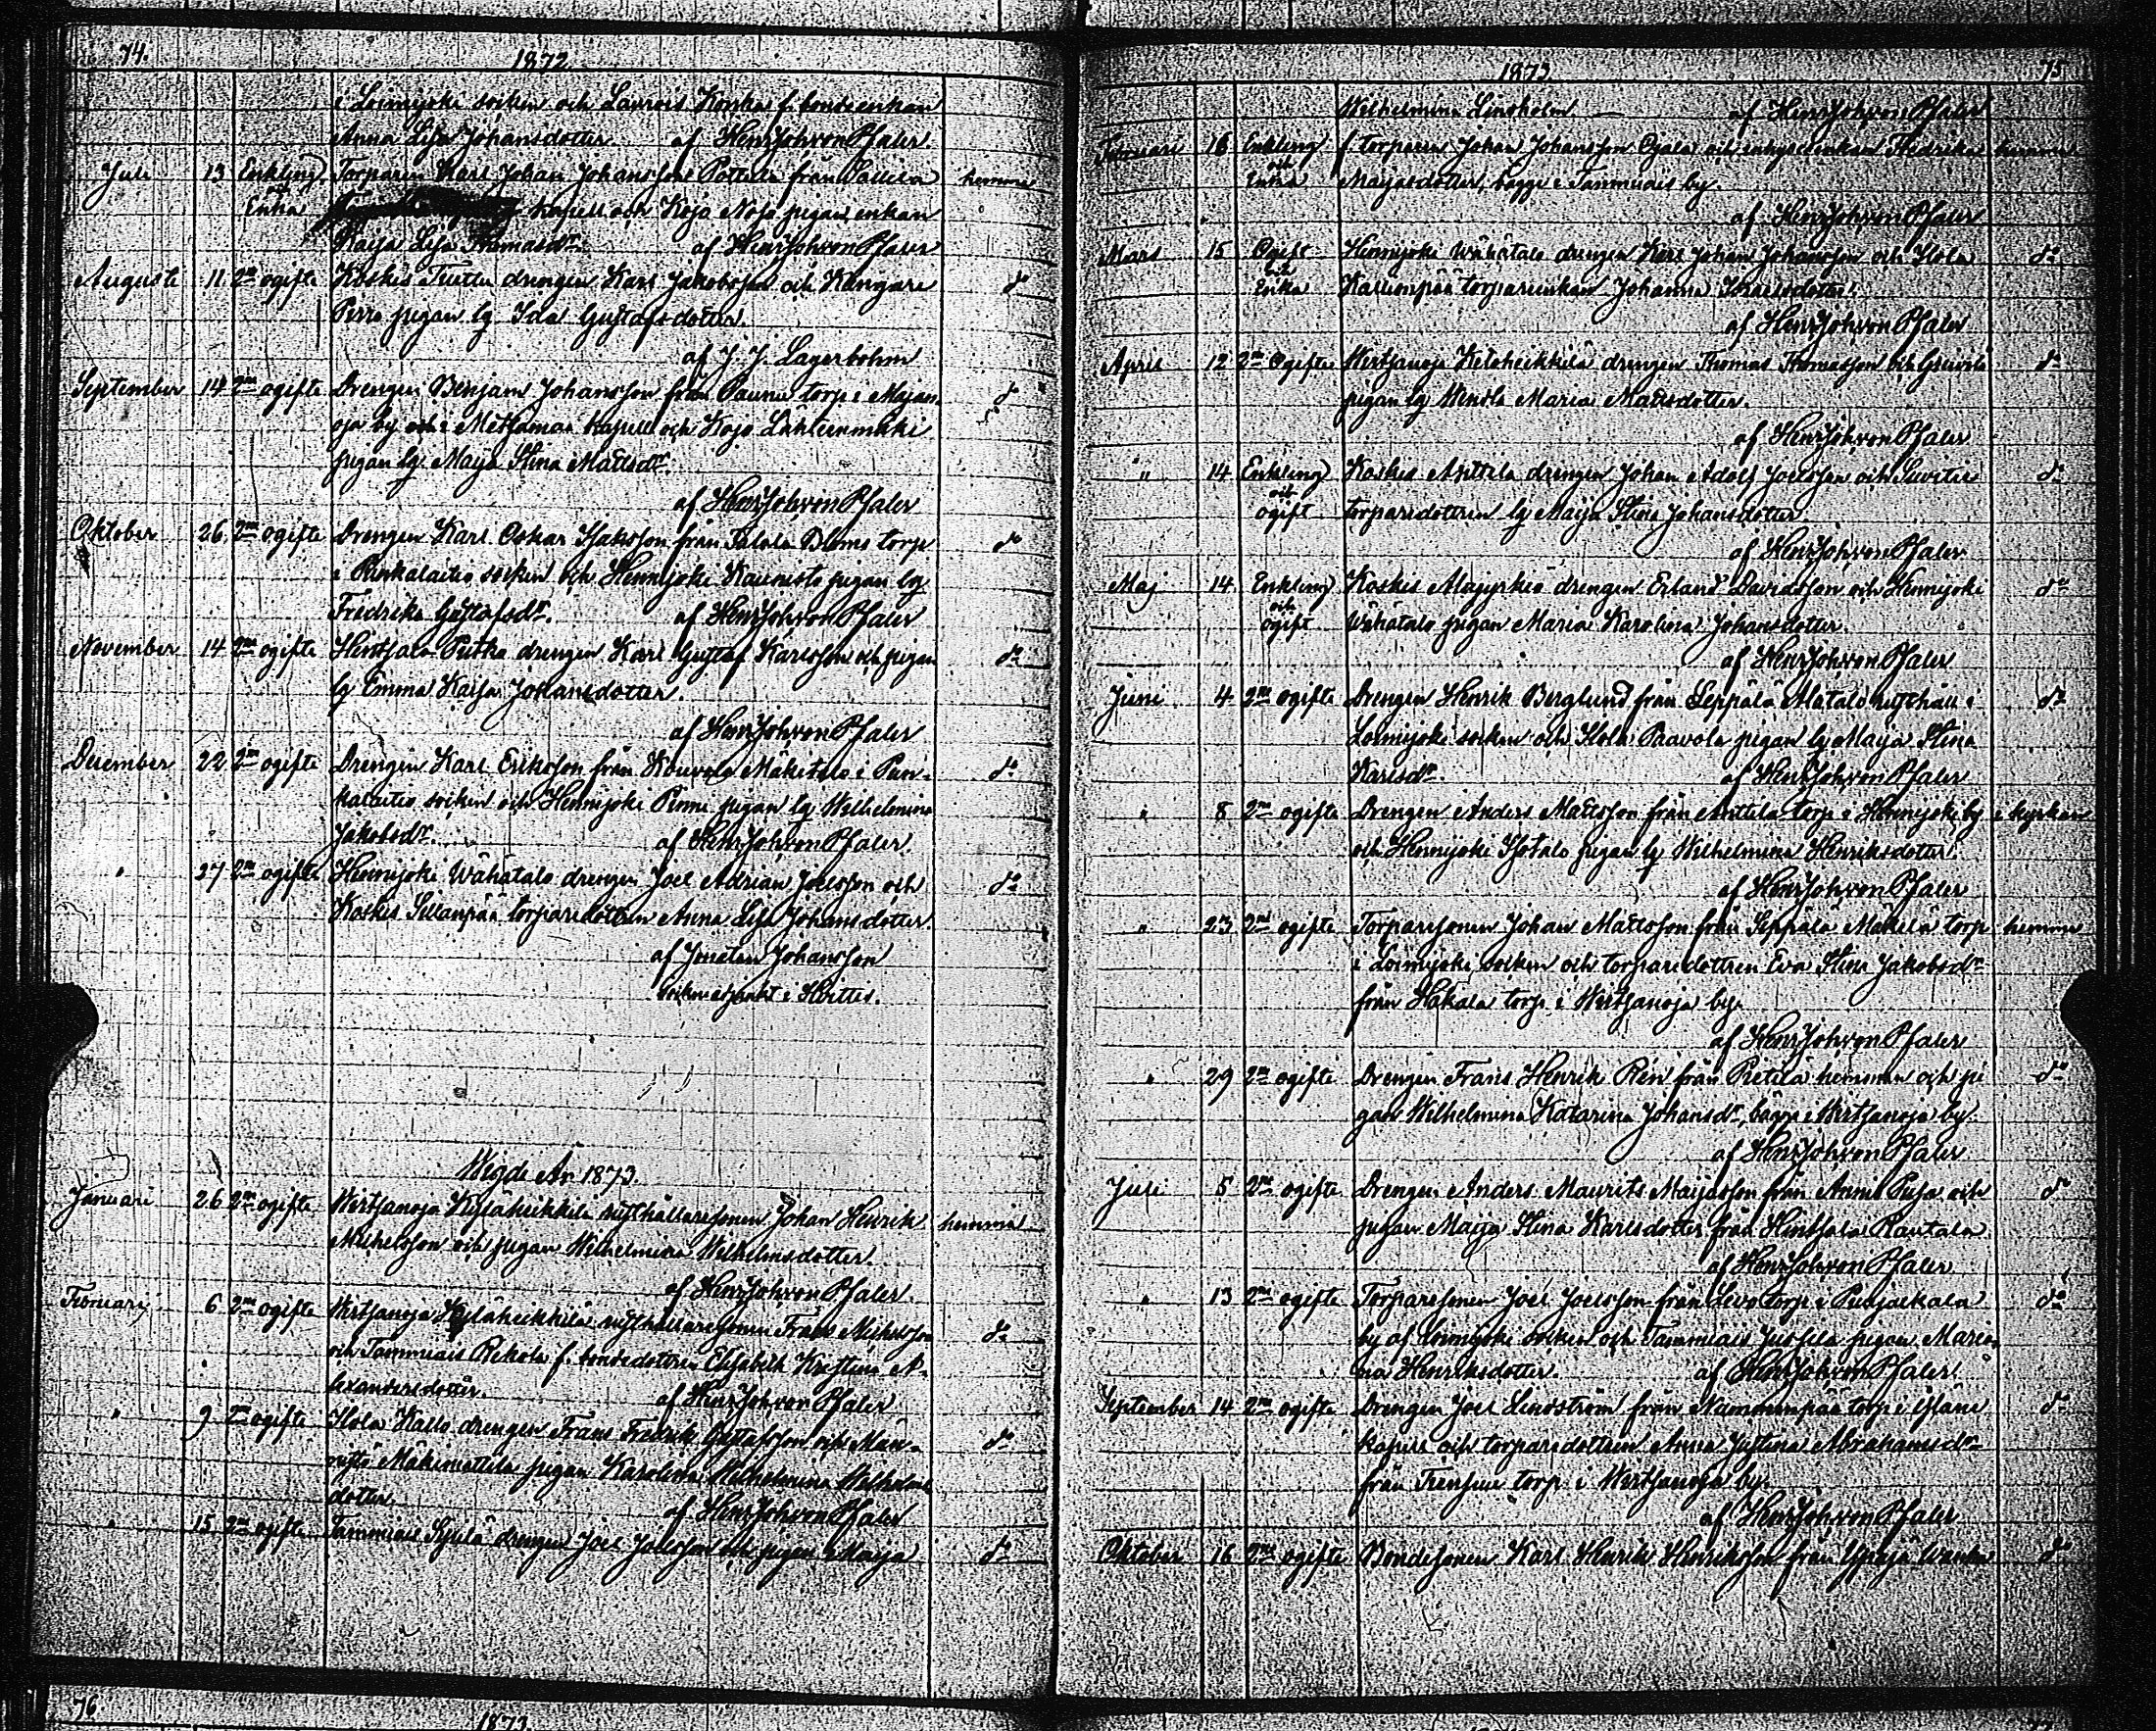 74.
1872
i Loimijoki socken och Laurois Koska f. bondeenkan
Anna Lisa Johansdotter. af Henr Joh von Pfaler.
Juli 13 Enkling och Enka Torparen Karl Johan Johansson Pottula från hemma
kapell och Koja Nojs pigan, enkan
Kaija Lisa Thomasdr. af Henr Joh von Pfaler
Augusti 11. 2ne ogifte Koskis Tuittu drengen Karl Jakobsson och Kangare do
Perro pigan lg Ida Gustafsdotter.
af J. J. Lagerbohm
September 14 2ne ogifte Drengen Benjam Johansson från Paunu torp i Majan- do
oja by och i Metsämaa kapell och Kojo Lähteenmäki
pigan lg. Maija Stina Mattsdr.
af Henr Joh von Pfaler
Oktober 26. 2ne ogifte Drengen Karl Oskar Isaksson från Talola Bloms torp do
i Punkalaitio socken och Hennijoki Kaunisto pigan lg
Fredrika Gustafsdr. af Henr Joh von Pfaler
November 14 2ne ogifte Hentsala Putka drengen Karl Gustaf Karlsson och pigan do
lg Emma Kaisa Johansdotter.
af Henr Joh von Pfaler
December 22 2ne ogifte Drengen Karl Eriksson från Kouvola Mäkitalo i Pun- do
kalaitio socken och Hennijoki Pinni pigan lg Wilhelmina
Jakobsdr. af Henr Joh von Pfaler.
" 27 2ne ogifte Hennijoki Wähätalo drengen Joel Adrian Joelsson och do
Koskis Sillanpää torparedottren Anna Lisa Johansdotter.
af Jonatan Johansson
sockneadjunkt i Hvittis.
Wigde År 1873.
Januari 26 2ne ogifte Wirtsanoja Kyläheikkilä rusthållaresonen Johan Henrik hemma
Michelsson och pigan Wilhelmina Wilhelmsdotter.
af Henr Joh von Pfaler.
Februari 6 2ne ogifte Wirtsanoja Kyläheikkilä rusthållaresonen Frans Michelsson do
och Tammiais Rekola f. bondedottren Elisabeth Kristina A-
lexandersdotter. af Henr Joh von Pfaler
" 9 2ne ogifte Ilola Kallo drengen Frans Fredrik Gustafsson och Män- do
nistö Mäkimattila pigan Karolina Wilhelmina Wilhelms
dotter. af Henr Joh von Pfaler
" 15 2ne ogifte Tammiais drengen Joel Joelsson och pigan Maija do
1873
75
Wilhelmina Lindholm. af Henr Joh von Pfaler
Februari 16 Enkling och Enka f. torparen Johan Johansson Ojala och inhyseenkan Fredrika hemma
Maijasdotter, begge i Tammiais by.
af Henr Joh von Pfaler
Mars 15 Ogift och Enka Hennijoki Wähätalo drengen Karl Johan Johansson och Ilola do
Kallionpää torpareenkan Johanna Israelsdotter.
af Henr Joh von Pfaler
April 12 2ne Ogifte Wirtsanoja Keloheikkilä drengen Thomas Thomasson och do
pigan lg Wendla Maria Mattsdotter.
af Henr Joh von Pfaler
" 14 Enkling och ogift Koskis Anttila drengen Johan Adolf Joelsson och do
torparedottren lg Maija Stina Johansdotter
af Henr Joh von Pfaler
Maj 14. Enkling och ogift Koskis drengen Erland Davidsson och Hennijoki do
Wähätalo pigan Maria Karolina Johansdotter.
af Henr Joh von Pfaler
Juni 4 2ne ogifte Drengen Henrik Berglund från Leppälä Alatalo rusthåll i do
Loimijoki socken och Ilola Paavola pigan lg Maija Stina
Karlsdr. af Henr Joh von Pfaler
" 8 2ne ogifte Drengen Anders Mattsson från Anttila torp i Hennijoki by i kyrkan
och Hennijoki Isotalo pigan lg Wilhelmina Henriksdotter.
af Henr Joh von Pfaler
" 23 2ne ogifte Torparesonen Johan Mattsson från Leppälä Mäkelä torp hemma
i Loimijoki socken och torparedottren Eva Stina Jakobsdr
från Hakala torp i Wirtsanoja by.
af Henr Joh von Pfaler
" 29 2ne ogifte Drengen Frans Henrik Rén från Pietilä hemman och pi do
gan Wilhelmina Katarina Johansdr, bägge i Wirtsanoja by.
af Henr Joh von Pfaler
Juli 5 2ne ogifte Drengen Anders Maurits Maijasson från Anni Pusa och do
pigan Maija Stina Karlsdotter från Hentsala Rautala
af Henr Joh von Pfaler
" 13 2ne ogifte Torparesonen Joel Joelsson från Levo torp i Puujalkala do
by af Loimijoki socken och Tammiais Jussila pigan Maria-
na Henriksdotter. af Henr Joh von Pfaler.
September 14 2ne ogifte Drengen Joel Lindström från Nummenpää torp i Yläne do
kapell och torparedottren Anna Justina Abrahamsdr
från torp i Wirtsanoja by.
af Henr Joh von Pfaler
Oktober 16 2ne ogifte Bondesonen Karl Henrik Henriksson från Ypäjä do
76
1873.